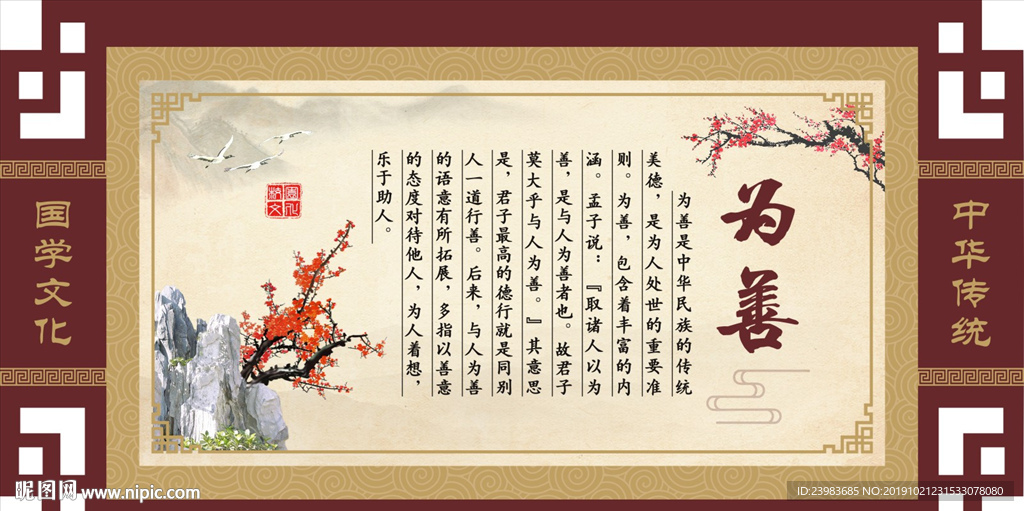 中华传统
为善
为善是中华民族的传统
美德，是为人处世的重要准
则。为善，包含着丰富的内
涵。孟子说：『取诸人以为
善，是与人为善者也。故君子
莫大乎与人为善。』其意思
是，君子最高的德行就是同别
人一道行善。后来，与人为善
的语意有所拓展，多指以善意
的态度对待他人，为人着想，
乐于助人。
国学文化
昵图网 www.nipic.com
ID:23983685 NO:20191021231533078080